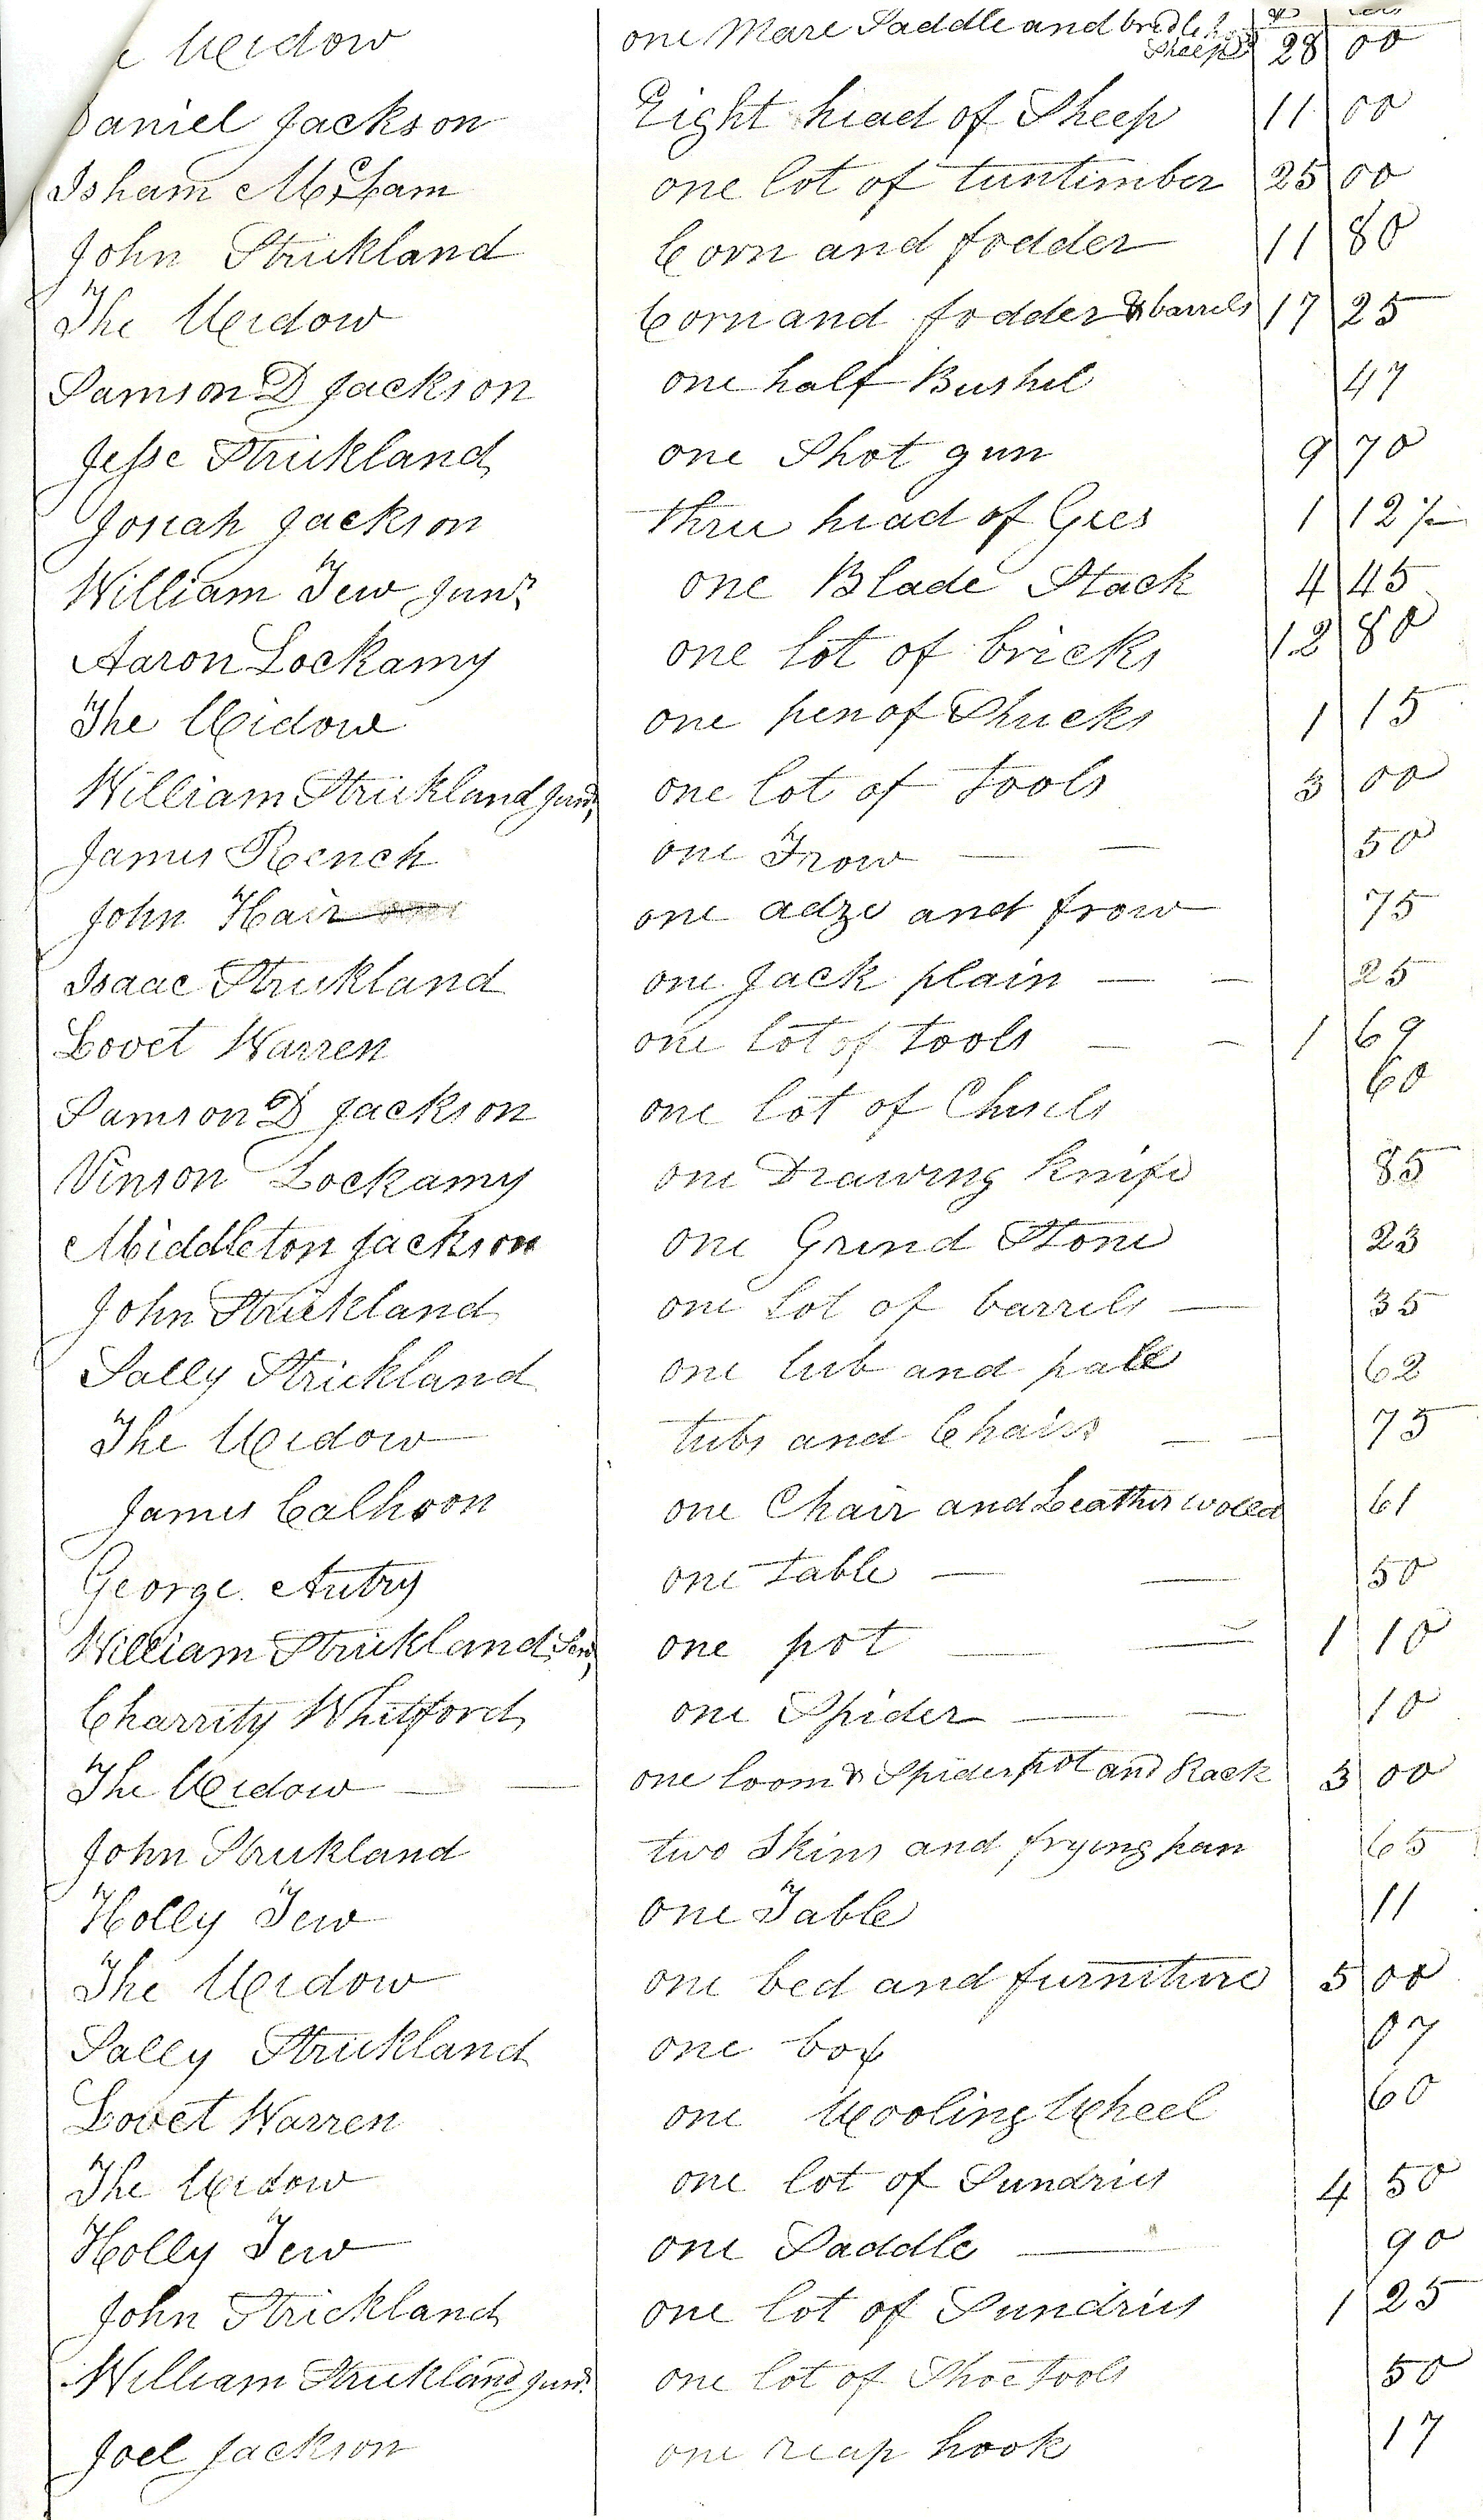 Widow one Mare Saddle and bridle Sheep 28 00
Daniel Jackson Eight head of Sheep 11 00
Isham one lot of tuntimber 25 00
John Strickland Corn and fodder 11 80
The Widow Corn and fodder & barrels 17 25
Samson D Jackson one half Bushel 47
Jesse Strickland one Shot gun 9 70
Josiah Jackson three head of Gees 1 12½
William Tew Junr one Blade Stack 4 45
Aaron Lockamy one lot of bricks 12 80
The Widow one pen of Shucks 1 15
William Strickland Junr one lot of tools 3 00
James Rench one Frow — — 50
John Hair one adze and frow 75
Isaac Strickland one Jack plain — — 25
Lovet Warren one lot of tools — — 1 69
Samson D Jackson one lot of Chisels 60
Vinson Lockamy one Drawing Knife 85
Middleton Jackson one Grind Stone 23
John Strickland one Lot of barrels — 35
Sally Strickland one tub and pale 62
The Widow tubs and Chairs — — 75
James Calhoon one Chair and Leather 61
George Autry one table — — 50
William Strickland Senr one pot — — 1 10
Charrity Whitford one Spider — — 10
The Widow — — one loom & Spider pot and Rack 3 00
John Strickland two Skins and frying pan 65
Holly Tew one Table 11
The Widow one bed and furniture 5 00
Sally Strickland one box 07
Lovet Warren one Wooling Wheel 60
The Widow one lot of Sundries 4 50
Holly Tew one Saddle — 90
John Strickland one lot of Sundries 1 25
William Strickland Junr one lot of Shoe tools 50
Joel Jackson one reap hook 17